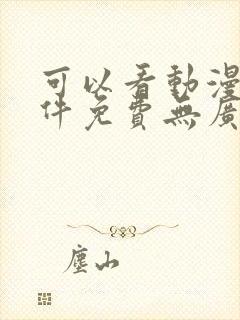 可以看動漫
件免費無廣
塵山